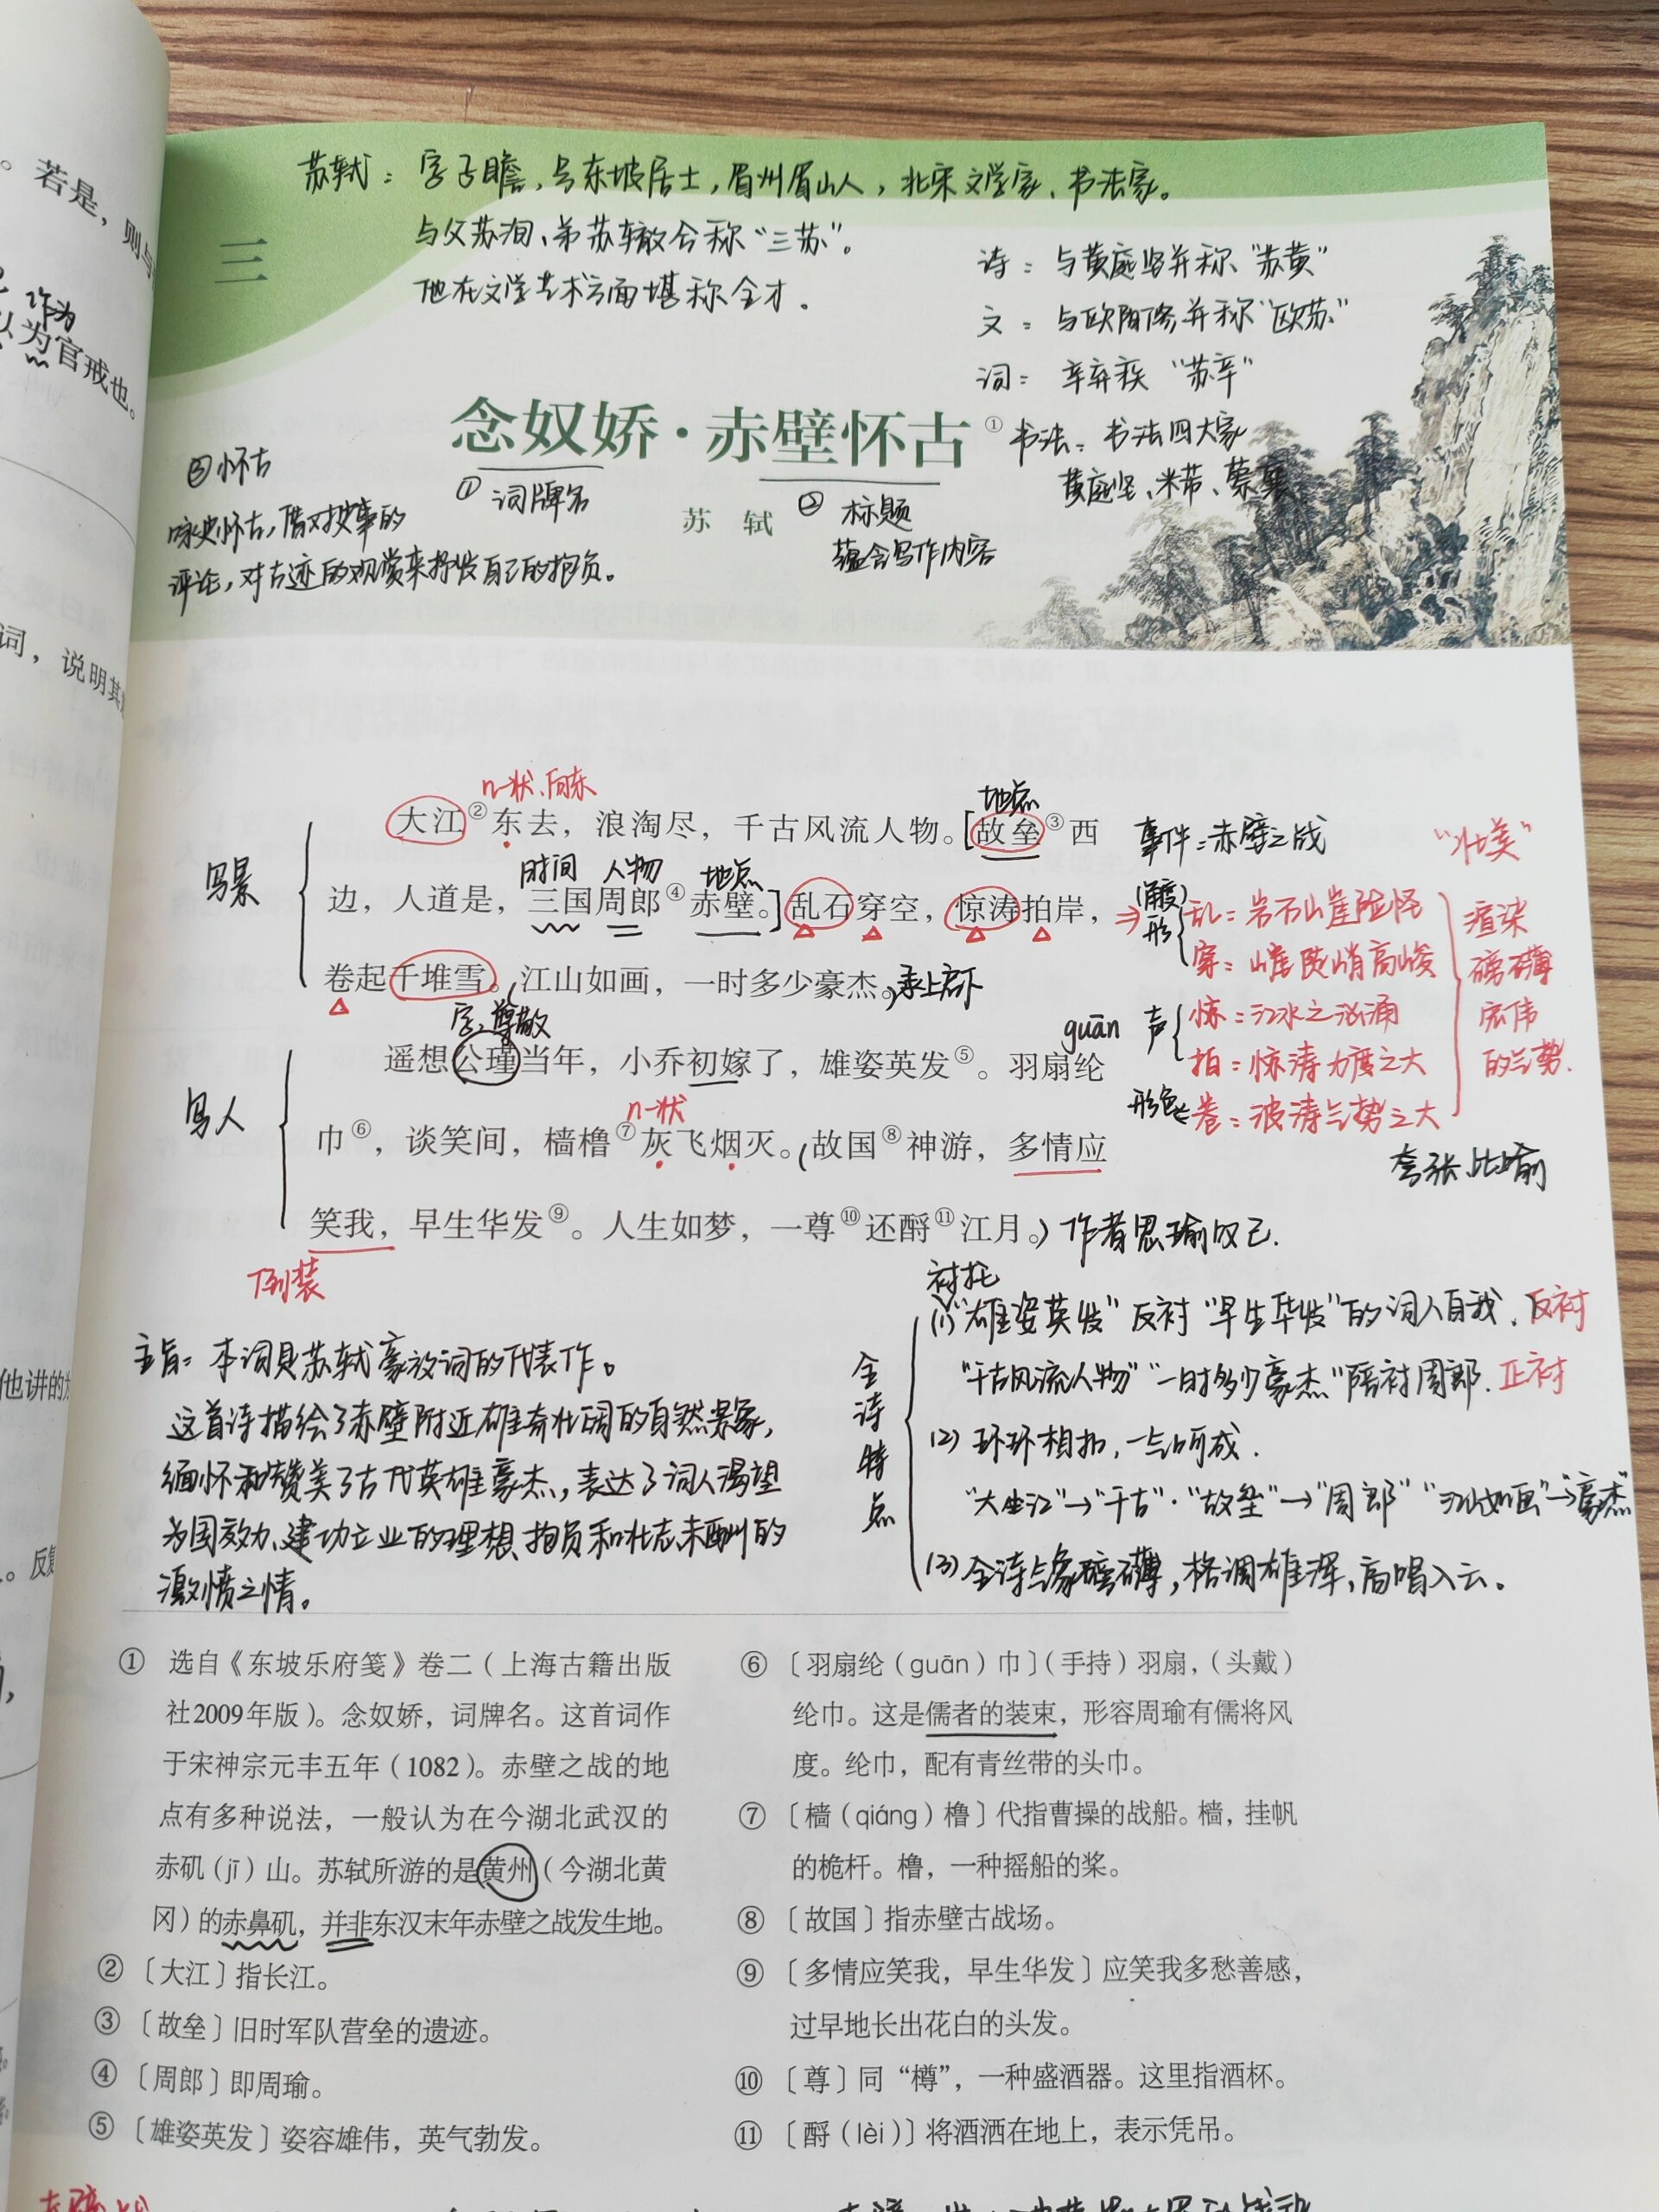 。若是，则与
作为
以为官戒也。
词，说明其
他讲的
。反复
三
苏轼：字子瞻，号东坡居士，眉州眉山人，北宋文学家、书法家。
与父苏洵、弟苏辙合称“三苏”。
他在文学艺术方面堪称全才．
诗：与黄庭坚并称“苏黄”
文：与欧阳修并称“欧苏”
词：辛弃疾“苏辛”
书法：书法四大家
黄庭坚、米芾、蔡襄
念奴娇·赤壁怀古①
①词牌名
苏 轼
②标题
蕴含写作内容
③怀古
咏史怀古，借对史事的
评论，对古迹的观赏来抒发自己的抱负。
n-状、向东
地点
写景
大江②东去，浪淘尽，千古风流人物。[故垒③西
时间 人物 地点
边，人道是，三国周郎④赤壁。]乱石穿空，惊涛拍岸，
卷起千堆雪。(江山如画，一时多少豪杰。)承上启下
事件：赤壁之战
“壮美”
形
乱：岩石山崖险怪
穿：山崖陡峭高峻
声
惊：江水之汹涌
拍：惊涛力度之大
形色
卷：波涛气势之大
渲染
磅礴
宏伟
的气势.
夸张、比喻
字，尊敬
guān
写人
遥想公瑾当年，小乔初嫁了，雄姿英发⑤。羽扇纶
n-状
巾⑥，谈笑间，樯橹⑦灰飞烟灭。(故国⑧神游，多情应
笑我，早生华发⑨。人生如梦，一尊⑩还酹⑪江月。)作者思瑜叹己.
倒装
主旨：本词是苏轼豪放词的代表作。
这首诗描绘了赤壁附近雄奇壮阔的自然景象，
缅怀和赞美了古代英雄豪杰，表达了词人渴望
为国效力、建功立业的理想、抱负和壮志未酬的
激愤之情。
全诗特点
衬托
(1)“雄姿英发”反衬“早生华发”的词人自我．反衬
“千古风流人物”“一时多少豪杰”陪衬周郎．正衬
(2)环环相扣，一气呵成．
“大江”→“千古”·“故垒”→“周郎”“江山如画”→“豪杰”
(3)全诗气象磅礴，格调雄浑，高唱入云。
① 选自《东坡乐府笺》卷二（上海古籍出版
社2009年版）。念奴娇，词牌名。这首词作
于宋神宗元丰五年（1082）。赤壁之战的地
点有多种说法，一般认为在今湖北武汉的
赤矶（jī）山。苏轼所游的是黄州（今湖北黄
冈）的赤鼻矶，并非东汉末年赤壁之战发生地。
② 〔大江〕指长江。
③ 〔故垒〕旧时军队营垒的遗迹。
④ 〔周郎〕即周瑜。
⑤ 〔雄姿英发〕姿容雄伟，英气勃发。
⑥ 〔羽扇纶（guān）巾〕（手持）羽扇，（头戴）
纶巾。这是儒者的装束，形容周瑜有儒将风
度。纶巾，配有青丝带的头巾。
⑦ 〔樯（qiáng）橹〕代指曹操的战船。樯，挂帆
的桅杆。橹，一种摇船的桨。
⑧ 〔故国〕指赤壁古战场。
⑨ 〔多情应笑我，早生华发〕应笑我多愁善感，
过早地长出花白的头发。
⑩ 〔尊〕同“樽”，一种盛酒器。这里指酒杯。
⑪ 〔酹（lèi）〕将酒洒在地上，表示凭吊。